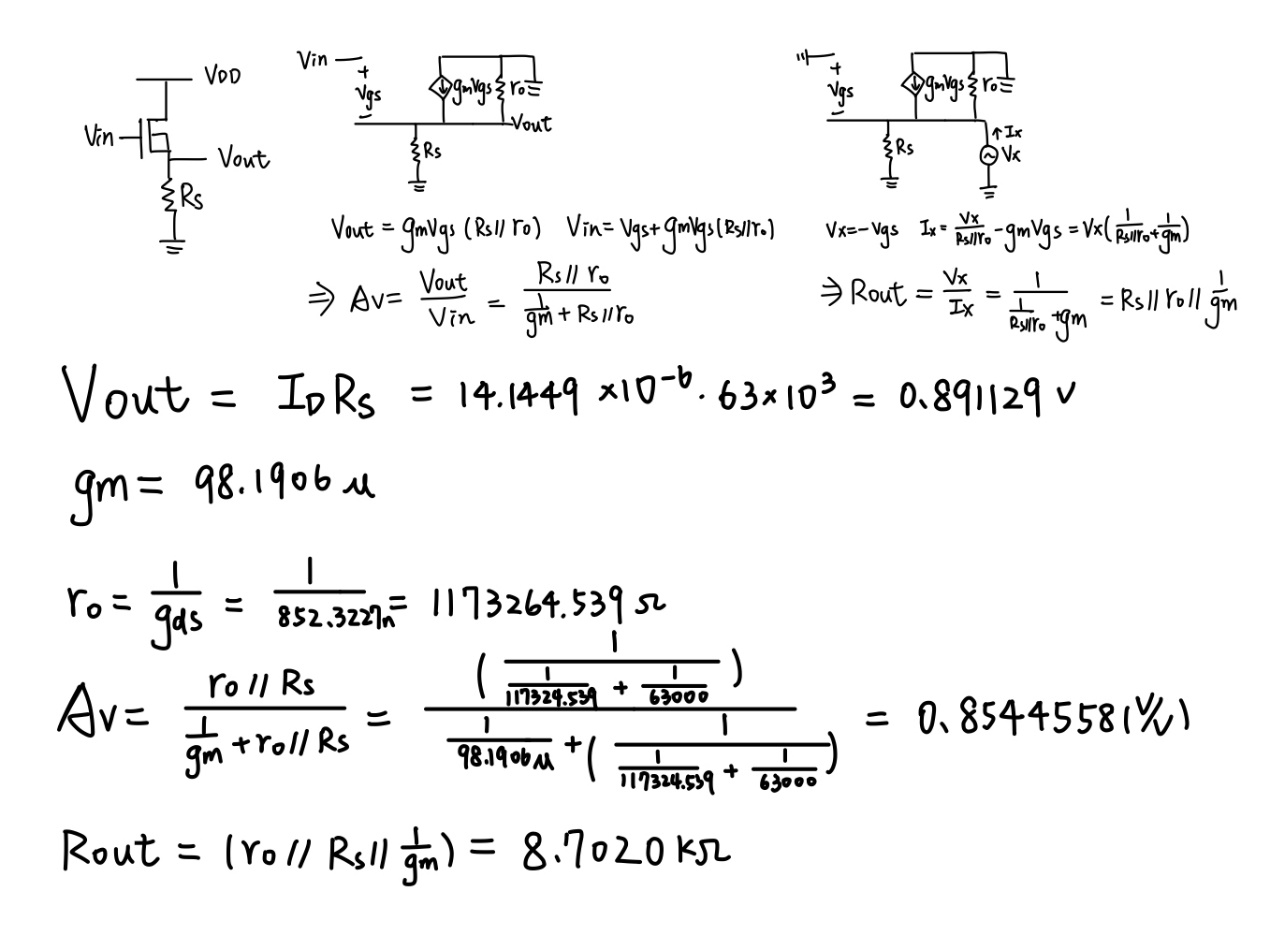 VDD
Vin
Vout
Rs
Vin
+
Vgs
−
gmVgs
ro
Vout
Rs
+
Vgs
−
gmVgs
ro
Rs
↑Ix
Vx
Vout = gmVgs (Rs// ro) Vin = Vgs + gmVgs(Rs//ro)
⇒ Av = Vout/Vin = (Rs// ro)/(1/gm + Rs//ro)
Vx=-Vgs Ix = Vx/(Rs//ro) - gmVgs = Vx(1/(Rs//ro) + 1/gm)
⇒ Rout = Vx/Ix = 1/(1/(Rs//ro) + gm) = Rs// ro // 1/gm
Vout = IDRs = 14.1449 ×10^-6 · 63×10^3 = 0.891129 V
gm = 98.1906 μ
ro = 1/gds = 1/852.3227n = 1173264.539 Ω
Av = (ro // Rs)/(1/gm + ro // Rs) = (1/(1/117324.539 + 1/63000))/(1/98.1906μ + (1/(1/117324.539 + 1/63000))) = 0.8544558 (V/V)
Rout = (ro // Rs// 1/gm) = 8.7020 kΩ